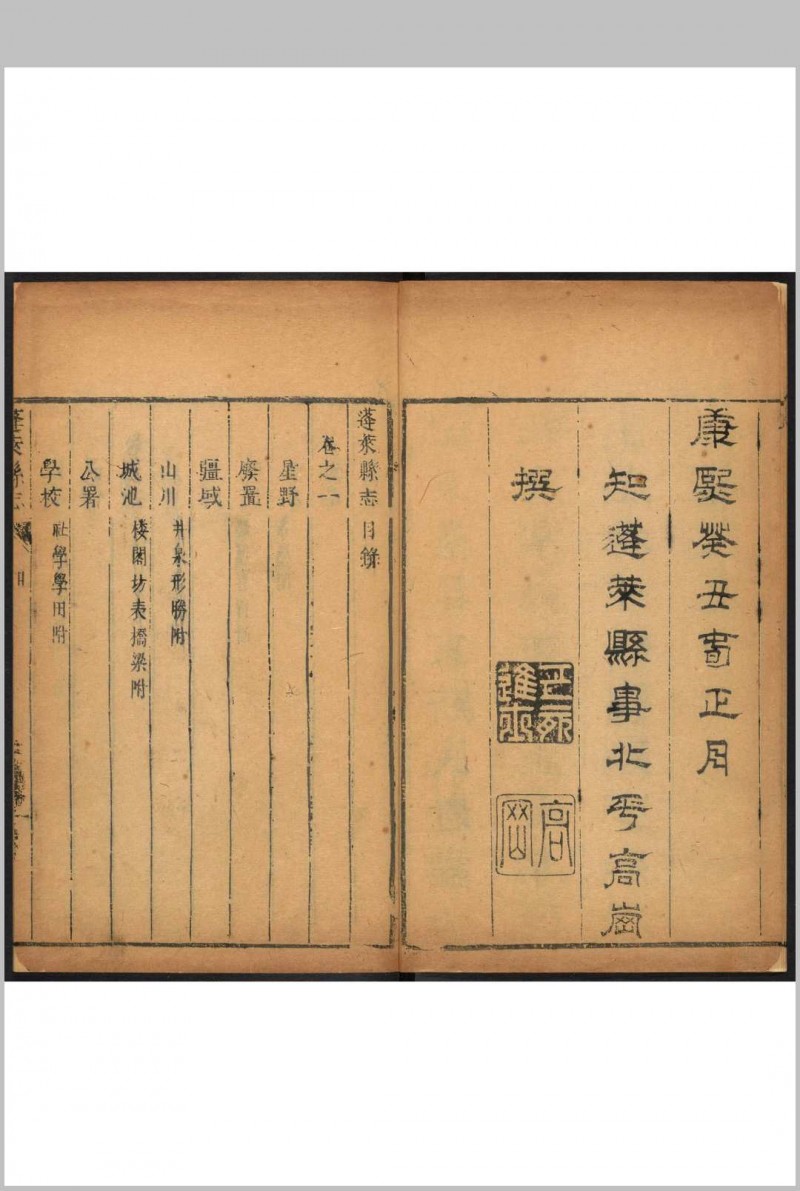 康熙癸丑春正月
知蓬萊縣事北平高崗
撰
高崗
蓬萊縣志目錄
卷之一
星野
廢置
疆域
山川 井泉形勝附
城池 樓閣坊表橋梁附
公署
學校 社學學田附
蓬萊縣志 目